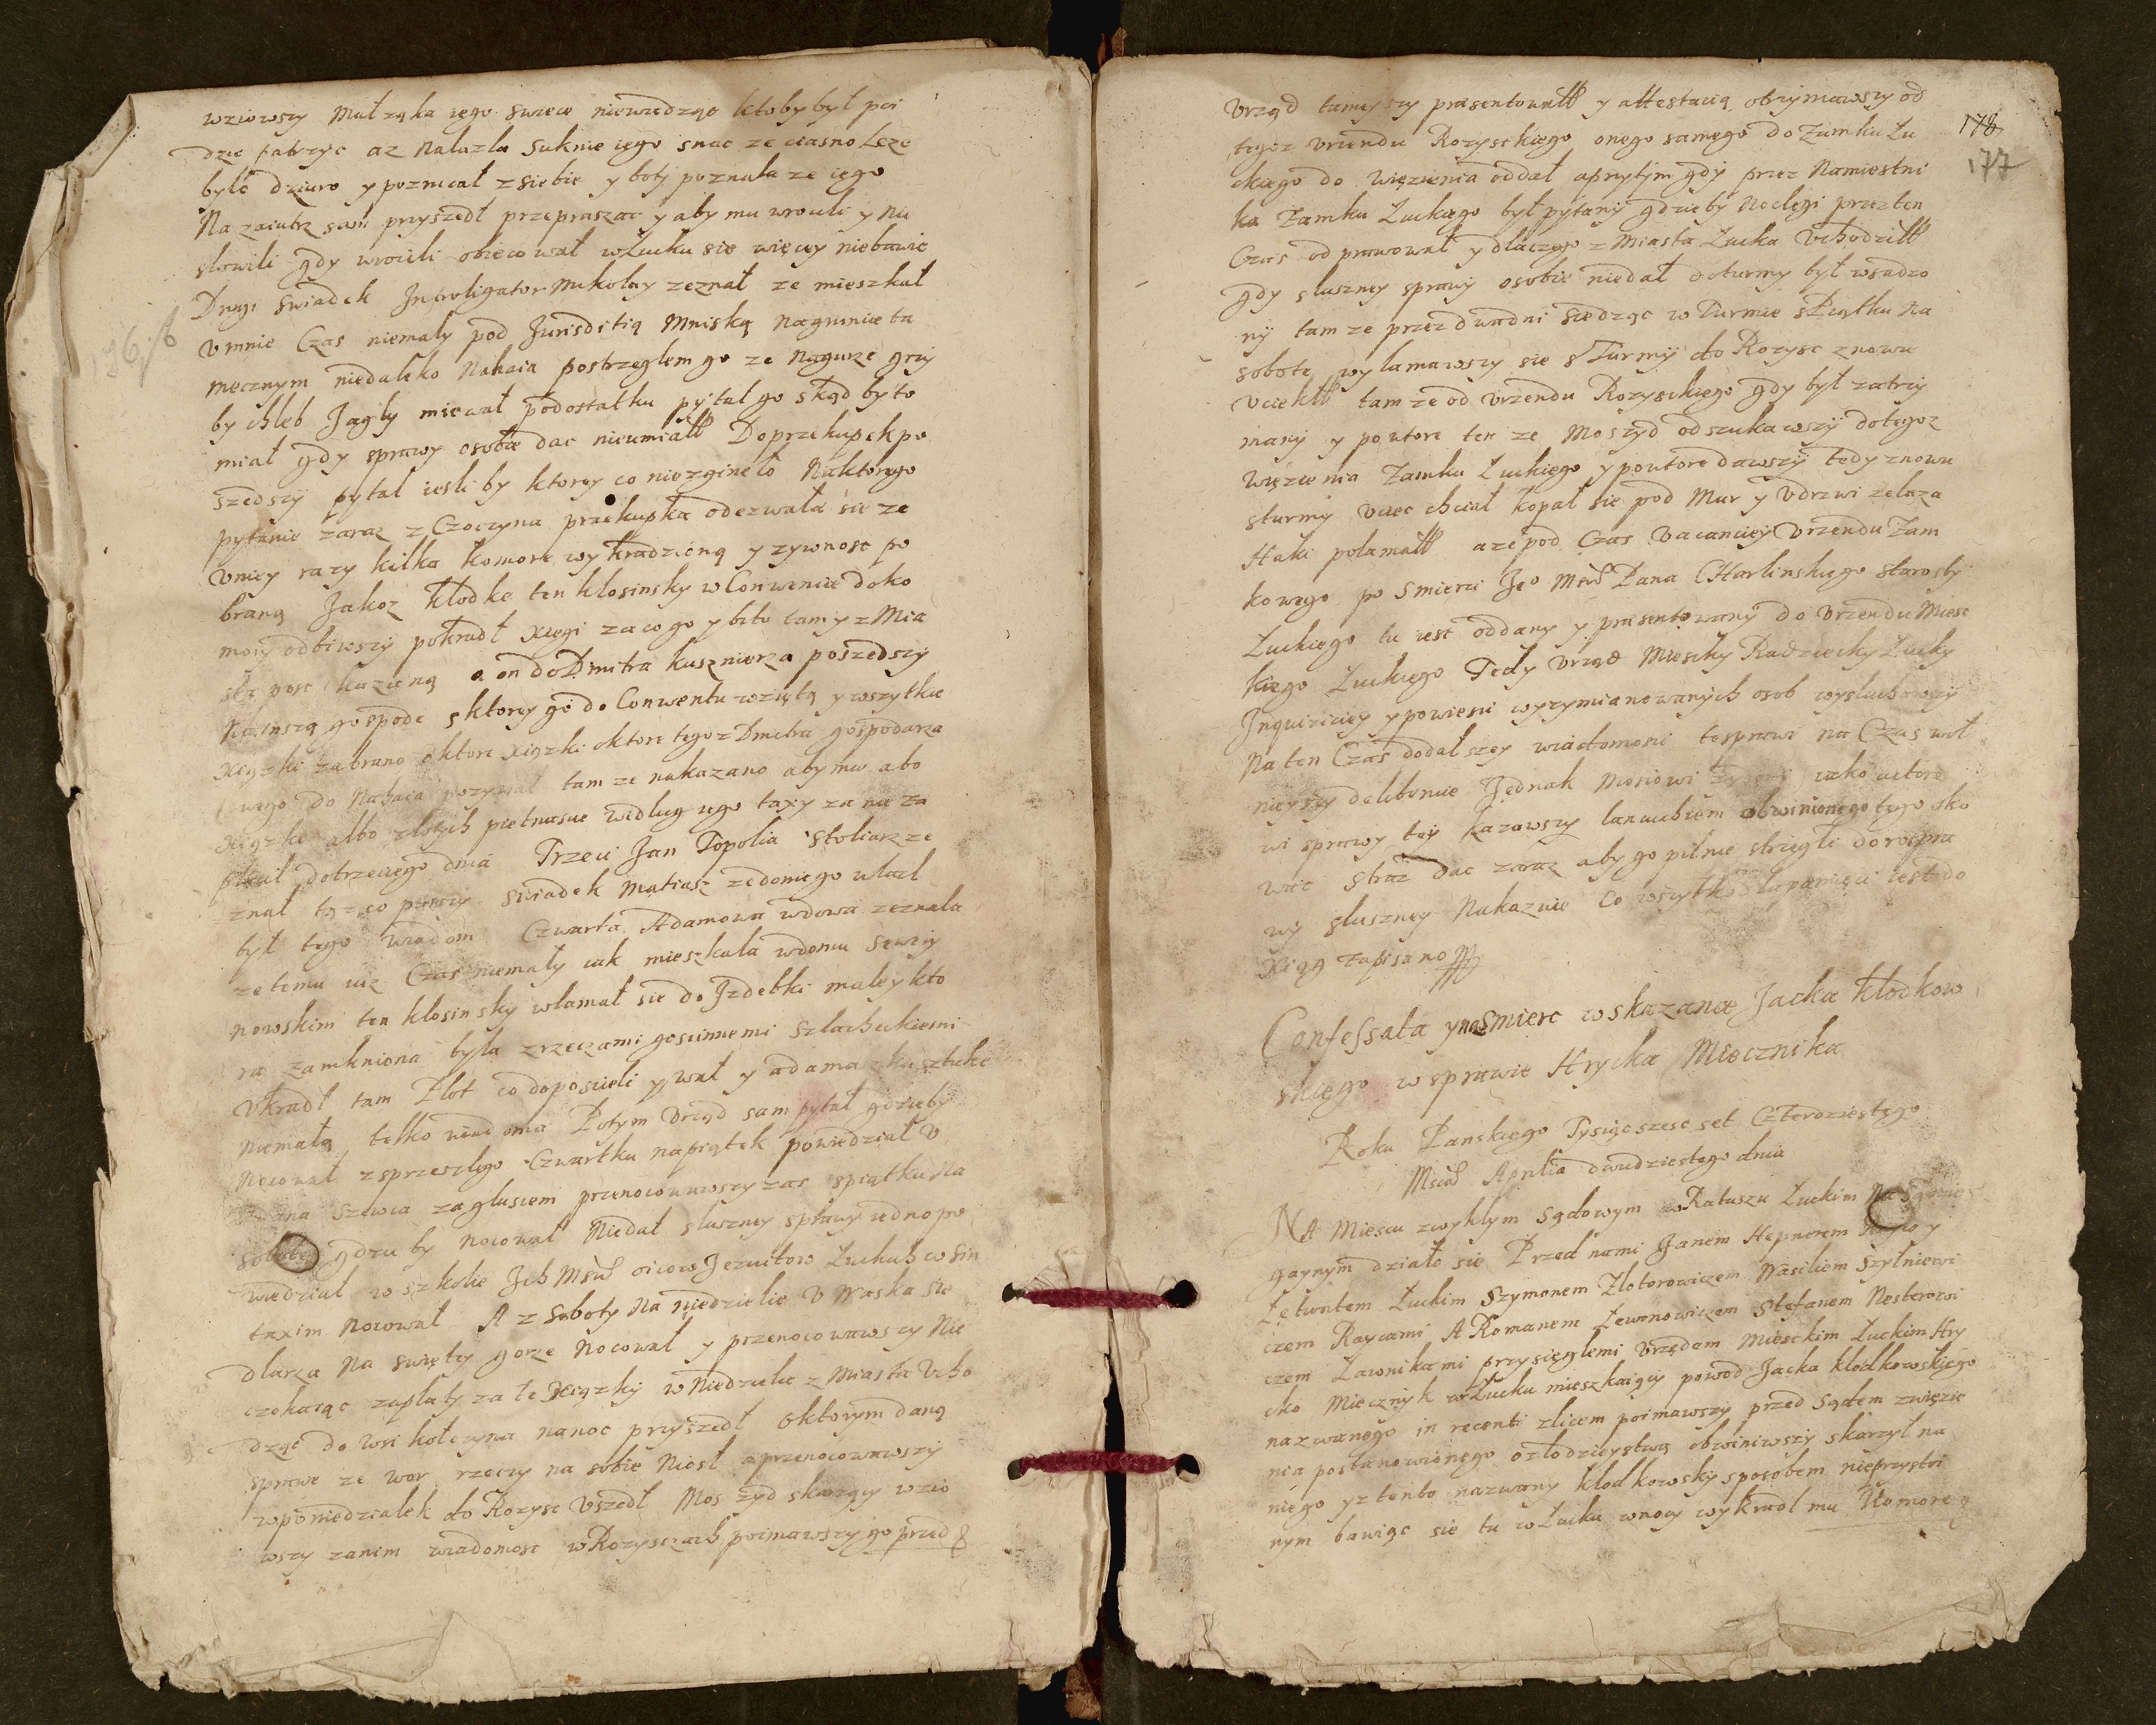 wziowszy Małząka iego swiece niewiedząc ktoby był poi
dzie patrzyc az Nalazła Suknie iego snac ze ciasno Leze
było dziuro y poznał z siebie y boty poznała ze iego
Nazaiutrz sam przyszedł przepraszac y aby mu wrocili y Nie
słowili gdy wrocili obiecował w Łucku sie więcey niebawic
Drugi Swiadek Introligator Mikołay zeznał ze mieszkał
v mnie Czas niemały pod Jurisditią Mniską Nagruncie ta
mecznym niedaleko Nahaia postrzegłem go ze Nagurze grzy
by chleb Jagły miewał podostatku pytał go skąd by to
miał gdy sprawy osobie dac nieumiałł Do przekupek po
szedszy pytał iesli by ktorey co niezgineło Naktorego
pytanie zaraz z Czoczyna przekupka odezwała sie ze
v niey razy kilka komore wykradzioną y zywnosc po
braną Jakoz kłodke ten kłosinsky w Conwencie do ko
mory odbiwszy pokradł xięgi za co go y bito tam y z Mia
sta posc kazaną a on do Dmitra kusznierza poszedszy
Na inszą gospode s ktorey go do Conwentu wziętą y wszytkie
xiązki zabrano o ktore xiązki o ktore tegoz Dmitra gospodarza
swego do Nahaia pozywał tam ze nakazano aby mu abo
xiązke albo złotych pietnascie według iego taxy za nie za
płacił dotrzeciego dnia Trzeci Jan Topolia Stoliarz ze
znał toz co pierwszy swiadek Matiasz ze do niego włazł
był tego wiadom Czwarta Adamowa wdowa zeznała
ze temu iuz Czas niemały iak mieszkała w domu Sewery
nowskim ten kłosinsky włamał sie do Izdebki małey kto
ra zamkniona była z rzeczami goscinnemi Szlacheckiemi
vkradł tam Płot co do poscieli y wał y adamaszku sztuke
niemałą telko wiadoma Potym Vrząd sam pytał gdzieby
Nocował z przeszłego Czwartku na piątek powiedział v
Jana Szewca za glusiem przenocowawszy zas s piątku Na
sobote gdzie by Nocował Niedał słuszney sprawy iedno po
wiedział w szkole Ich Msc oicow Jezuitow Łuckich w Sin
taxim Nocował A z Soboty Na niedzielie v Waska Sie
dlarza Na swiętey gorze Nocował y przenocowawszy Nie
czekaiąc zapłaty za te xiązky w Niedziele z Miasta Vcho
dząc do wsi kołczyna na noc przyszedł o ktorym daną
sprawe ze wor rzeczy na sobie Niosł a przenocowawszy
w poniedziałek do Rozysc Vszedł Mos zyd skarzący wzio
wszy zanim wiadomosc w Rozyszczach poimawszy go przed
Vrząd tameyszy praesentowałł y attestacią otrzymawszy od
178
177
tegoz vrzendu Rozysckiego onego samego do Zamku Łu
ckiego do więzienia oddał a przytym gdy przez Namiestni
ka Zamku Łuckiego był pytany gdzieby Noclegi przez ten
Czas odprawował y dlaczego z Miasta Łucka Vchodziłł
gdy słuszney sprawy osobie niedał do turmy był wsadzo
ny tam ze przez dwa dni siedząc w Turmie s Piątku na
sobote wyłamawszy sie s Turmy do Rozysc znowu
vciekłł tam ze od vrzendu Rozysckiego gdy był zatrzy
many y powtore ten ze Moszyd odszukawszy do tegoz
Więzienia Zamku Łuckiego y powtore dawszy tedy znowu
s turmy vciec chciał kopał sie pod Mur y v drzwi zelaza
Haki połamałł a ze pod Czas Vacanciey Vrzendu Zam
kowego po Smierci Jeo Msci Pana CHarlinskiego Starosty
Łuckiego tu iest oddany y praesentowany do Vrzendu Miesc
kiego Łuckiego Tedy Vrząd Miescky Radziecky Łucky
Inquiziciey y powiesci wyzymianowanych osob wysłuchawszy
Na ten Czas do dalszey wiadomosci te sprawe na Czas wol
nieyszy deliberuie Jednak Mosiowi Zydowi iako actoro
wi sprawy tey kazawszy lancuchiem obwinionego tego oko
wac straz dac zaraz aby go pilnie strzegli do rospra
wy słuszney Nakazuie Co wszytko dla pamięci iest do
xiąg zapisano
Confessata y na Smierc wskazanie Jacka kłodkow
skiego w sprawie Hrycka Miecznika
Roku Panskiego Tysiąc szesc set Czterdziestego
Msca Aprilia dwudziestego dnia
NA Miescu zwykłym Sądowym w Ratuszu Łuckim Na Sądzie
gaynym działo sie Przed nami Janem Hepnerem
Łętwoitem Łuckim Szymonem Złotorowiczem Wasiliem Szyłniewi
czem Raycami A Romanem Lewonowiczem Stefanem Nesterowi
czem Ławnikami przysięgłemi Vrzędem Miesckim Łuckim Hry
cko Miecznyk w Łucku mieszkaiący powod Jacka kłodkowskiego
nazwanego in recenti z licem poimawszy przed Sądem z więzie
nia postanowionego o złodzieystwą obwiniwszy skarzył na
niego yz ten to nazwany kłodkowsky sposobem nieprzystoi
nym bawiąc sie tu w Łucku w nocy wykradł mu komore